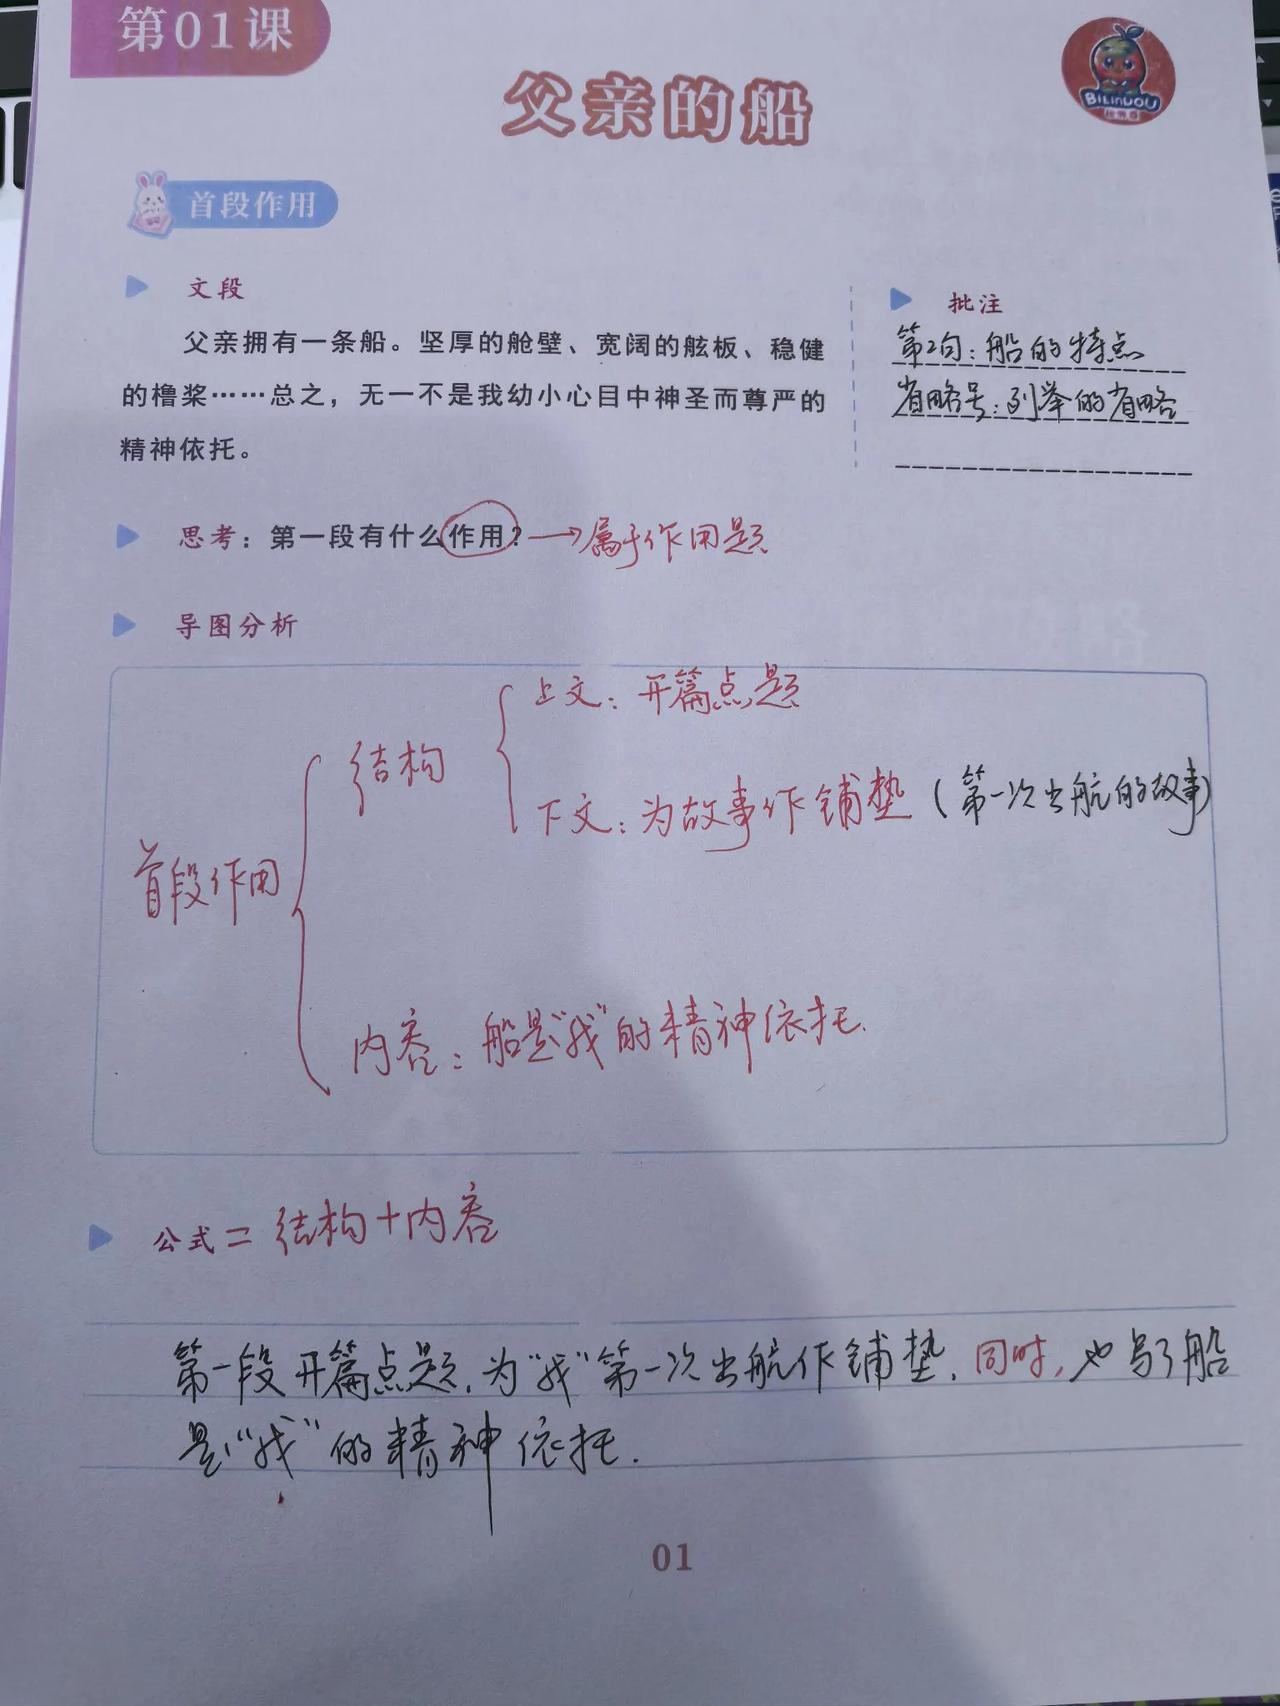 第01课
父亲的船
BILINUOU
首段作用
文段
父亲拥有一条船。坚厚的舱壁、宽阔的舷板、稳健
的橹桨……总之，无一不是我幼小心目中神圣而尊严的
精神依托。
批注
第2句：船的特点
省略号：列举的省略
思考：第一段有什么作用？→属于作用题
导图分析
首段作用
结构
上文：开篇点题
下文：为故事作铺垫（第一次出航的故事）
内容：船是“我”的精神依托.
公式＝结构＋内容
第一段开篇点题，为“我”第一次出航作铺垫，同时，也写了船
是“我”的精神依托.
01